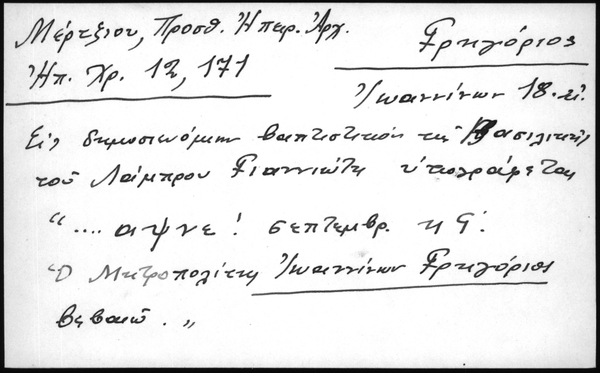 Μέρτζιου, Προσθ. Ἠπειρ. Ἀρχ.
Ἠπ. Χρ. 12, 171
Γρηγόριος
Ἰωαννίνων 18. αἰ.
Εἰς δημοσιευόμενον βαπτιστικὸν τῆς Βασιλικῆς
τοῦ Λάμπρου Γιαννιώτη ὑπογράφεται
".... αψνε! σεπτεμβρ.
Ὁ Μητροπολίτης Ἰωαννίνων Γρηγόριος
βεβαιῶ . "